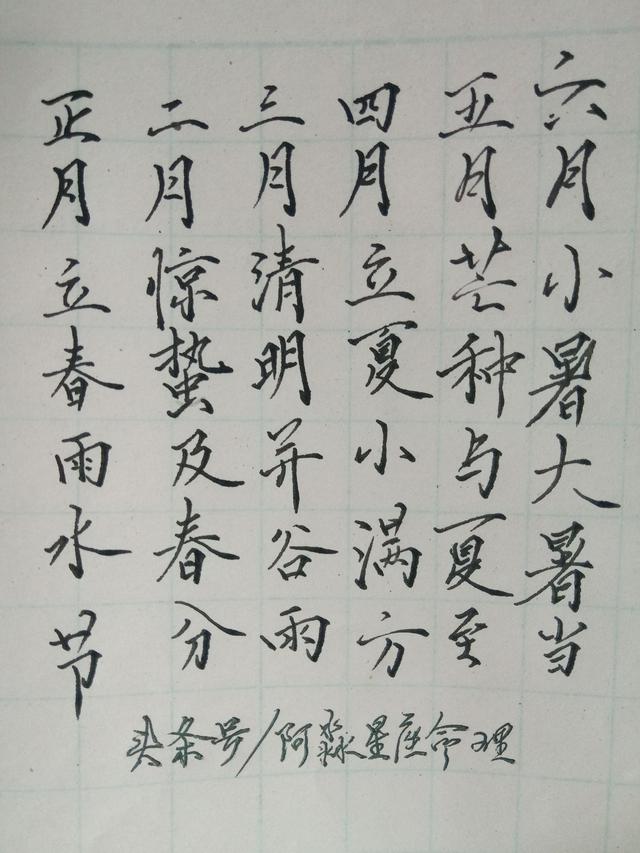 正月立春雨水节
二月惊蛰及春分
三月清明并谷雨
四月立夏小满方
五月芒种与夏至
六月小暑大暑当
头条号/阿淼星座命理